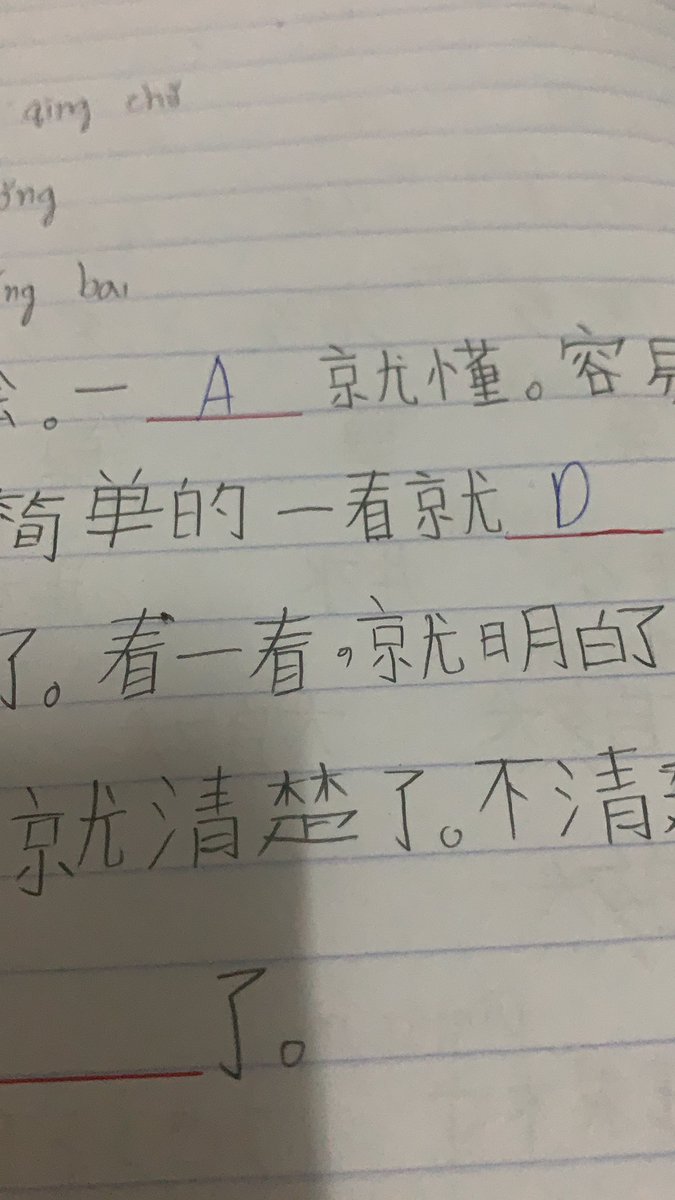 qing chǔ
ng
ng bai
。一 A 就懂。容易
简单的一看就 D
了。看一看,就明白了
就清楚了。不清楚
了。